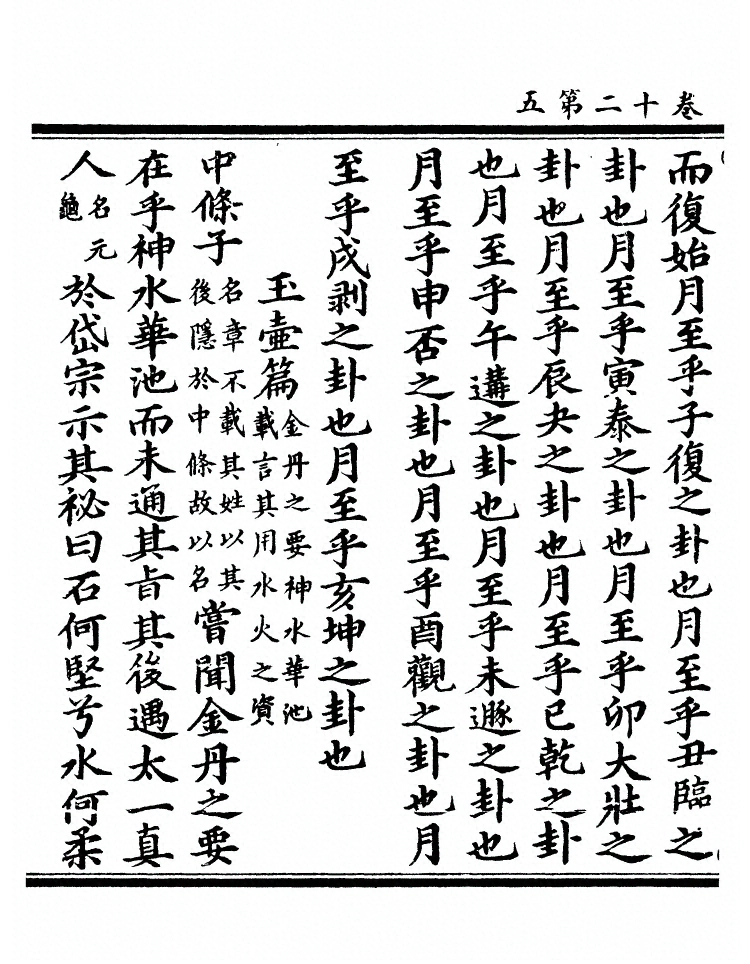 卷十二第五
而復始月至乎子復之卦也月至乎丑臨之
卦也月至乎寅泰之卦也月至乎卯大壯之
卦也月至乎辰夬之卦也月至乎巳乾之卦
也月至乎午遘之卦也月至乎未遯之卦也
月至乎申否之卦也月至乎酉觀之卦也月
至乎戌剥之卦也月至乎亥坤之卦也
玉壷篇金丹之要神水華池載言其用水火之資
中條子名章不載其姓以其後隱於中條故以名嘗聞金丹之要
在乎神水華池而未通其旨其後遇太一真
人名元龜於岱宗示其祕曰石何堅兮水何柔